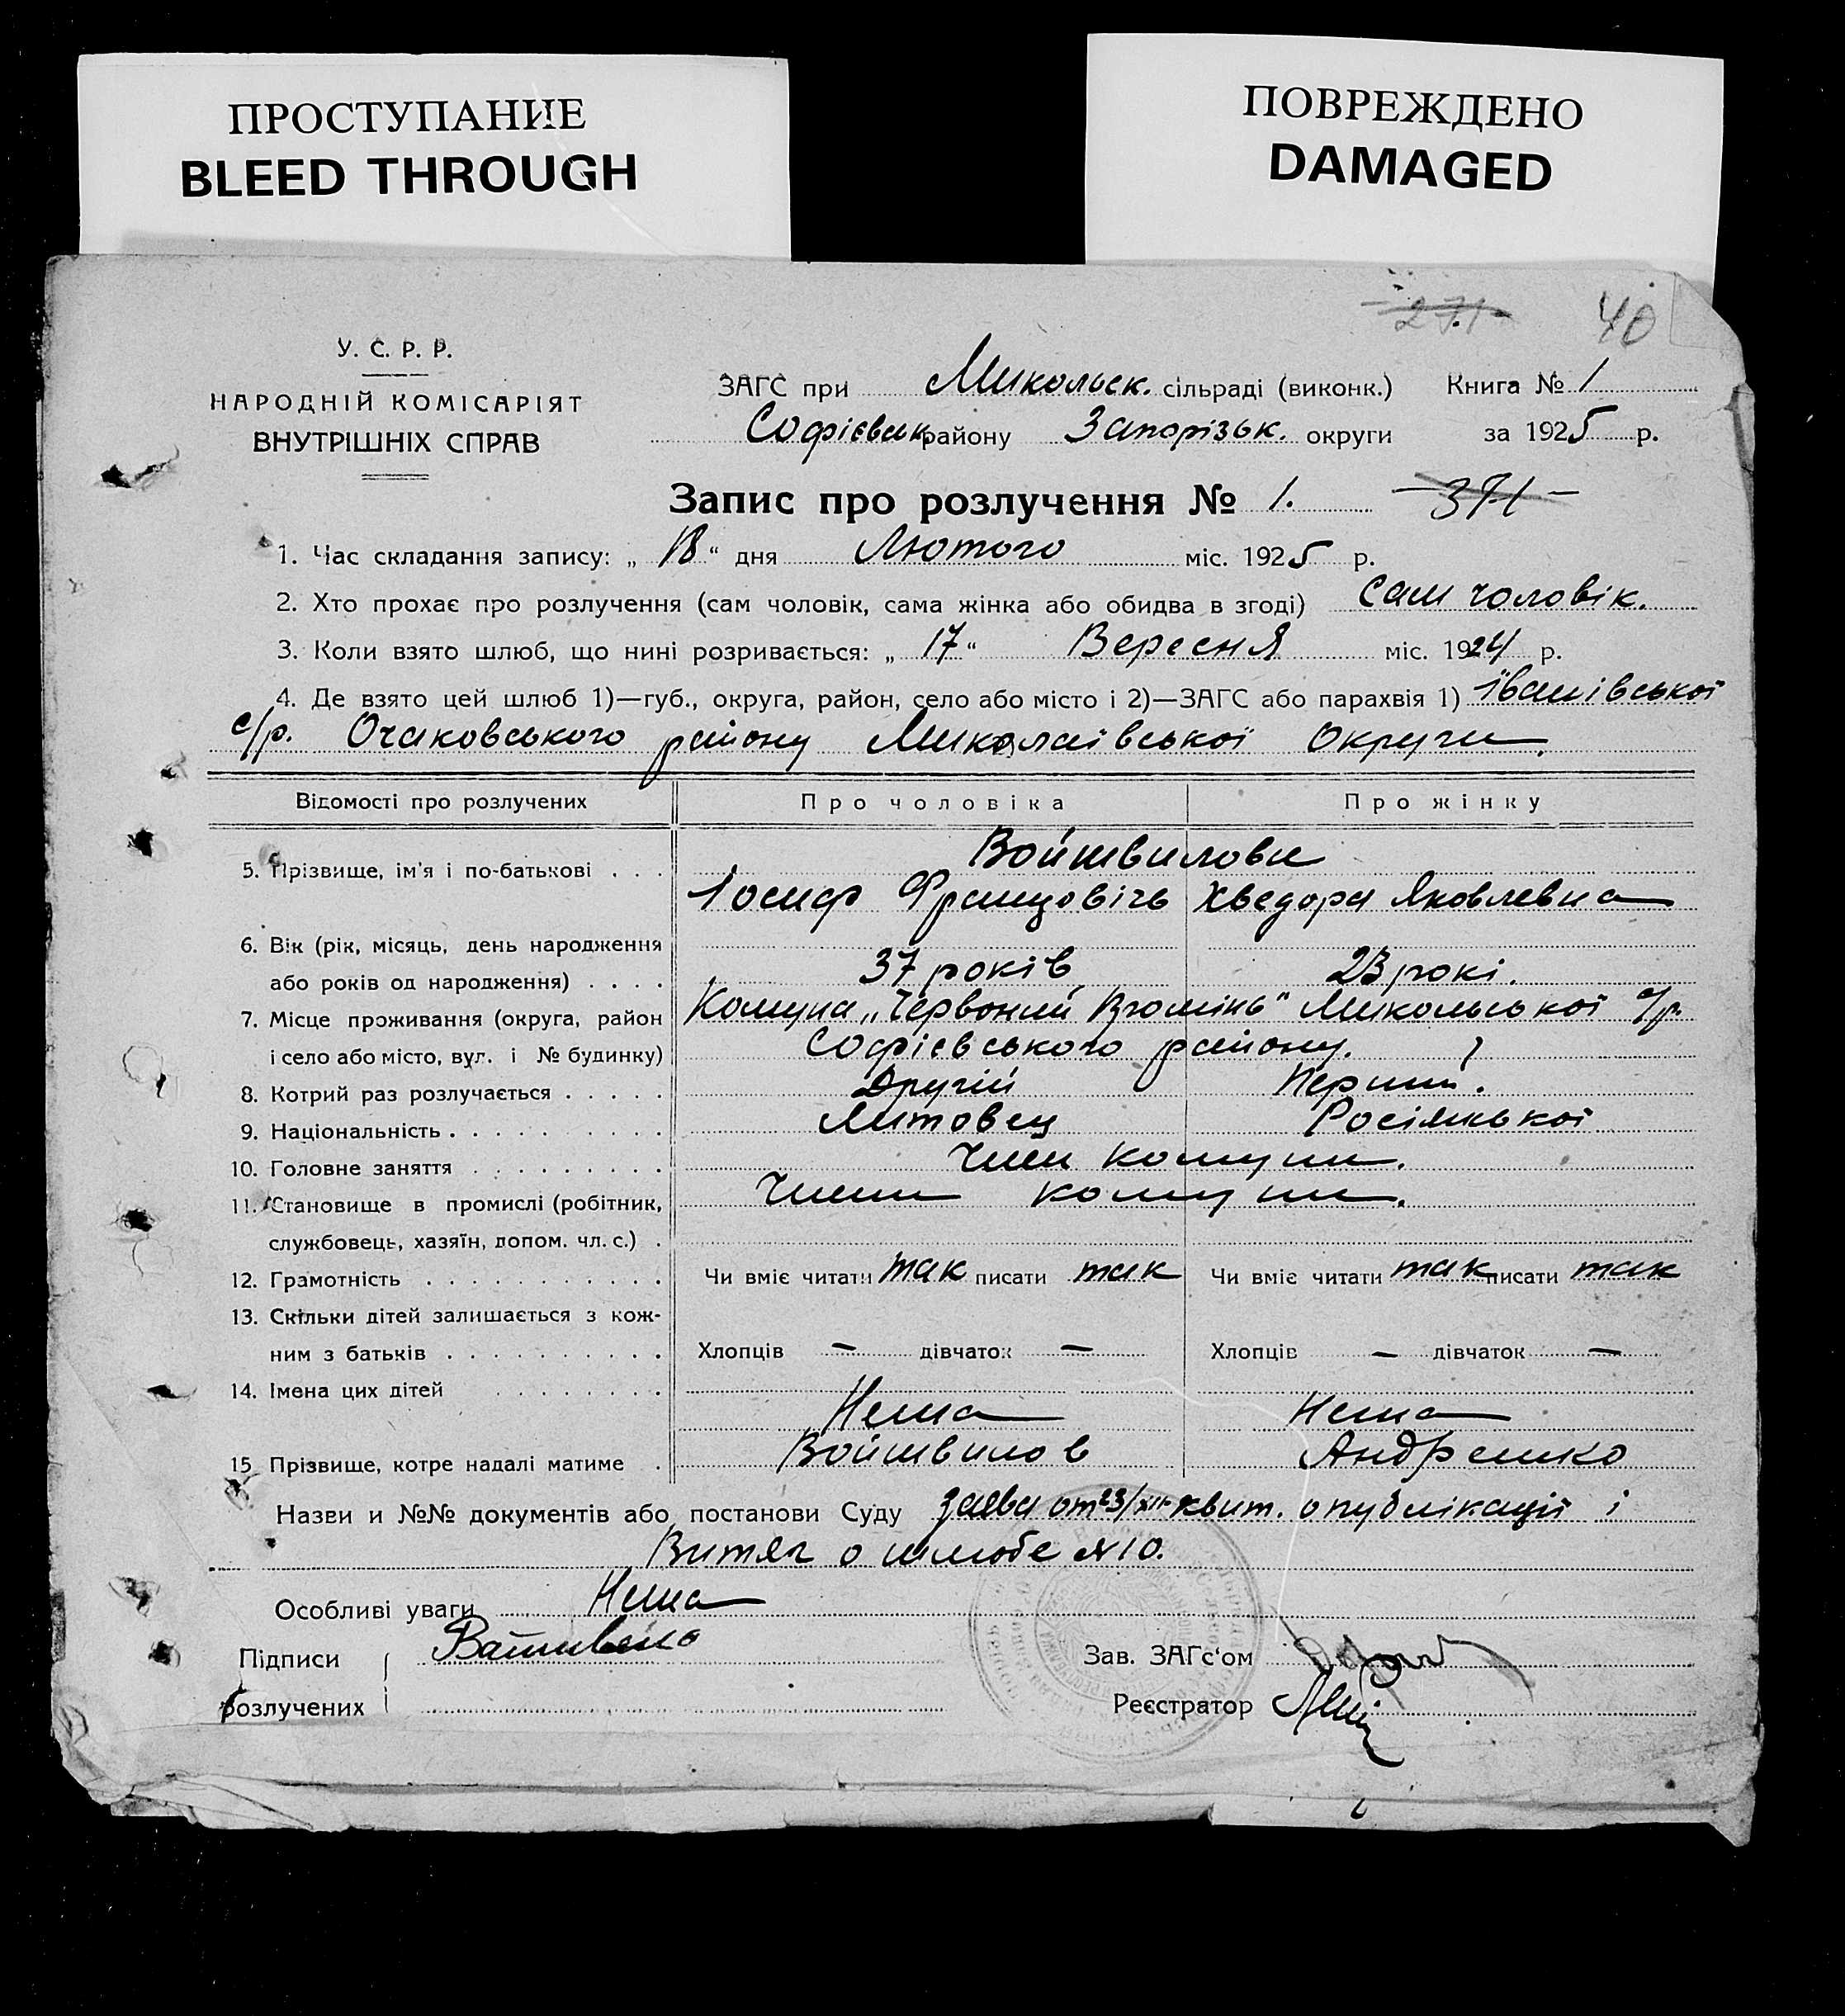 ПРОСТУПАНИЕ
BLEED THROUGH
ПОВРЕЖДЕНО
DAMAGED
271
40
У. С. Р. Р.
НАРОДНІЙ КОМІСАРІЯТ
ВНУТРІШНІХ СПРАВ
ЗАГС при Микольск. сільраді (виконк.) Книга № 1
Софієвськ району Запорізьк. округи за 1925 р.
Запис про розлучення № 1. 371
1. Час складання запису: „ 18 “ дня Лютого міс. 1925 р.
2. Хто прохає про розлучення (сам чоловік, сама жінка або обидва в згоді) Сам чоловік.
3. Коли взято шлюб, що нині розривається: „ 17 “ Вересня міс. 1924 р.
4. Де взято цей шлюб 1)—губ., округа, район, село або місто і 2)—ЗАГС або парахвія 1) Іванівської
с/р. Очаковського району Миколаївської Округи.
Відомості про розлучених Про чоловіка Про жінку
Войшвилови
5. Прізвище, ім'я і по-батькові . . . Іосиф Францовічь Хведора Яковлевна
6. Вік (рік, місяць, день народження
або років од народження) . . . . 37 років 23 рокі.
7. Місце проживання (округа, район Комуна „Червоний Промінь“ Микольської с/р.
і село або місто, вул. і № будинку) Софієвського району.
8. Котрий раз розлучається . . . . . Другій Перший.
9. Національність . . . . . . . . . . Литовец Росіянької
10. Головне заняття . . . . . . . . . Член комуни.
11. Становище в промислі (робітник, Члени комуни.
службовець, хазяїн, допом. чл. с.) .
12. Грамотність . . . . . . . . . . . Чи вміє читати так писати так Чи вміє читати так писати так
13. Скільки дітей залишається з кож-
ним з батьків . . . . . . . . . . Хлопців — дівчаток — Хлопців — дівчаток —
14. Імена цих дітей . . . . . . . .
Нема Нема
15. Прізвище, котре надалі матиме . Войшвилов Андрешко
Назви и №№ документів або постанови Суду заява от 23/XII квит. о публікації і
Витяг о шлюбе №10.
Особливі уваги Нема
Підписи
розлучених
Зав. ЗАГс'ом
Реєстратор